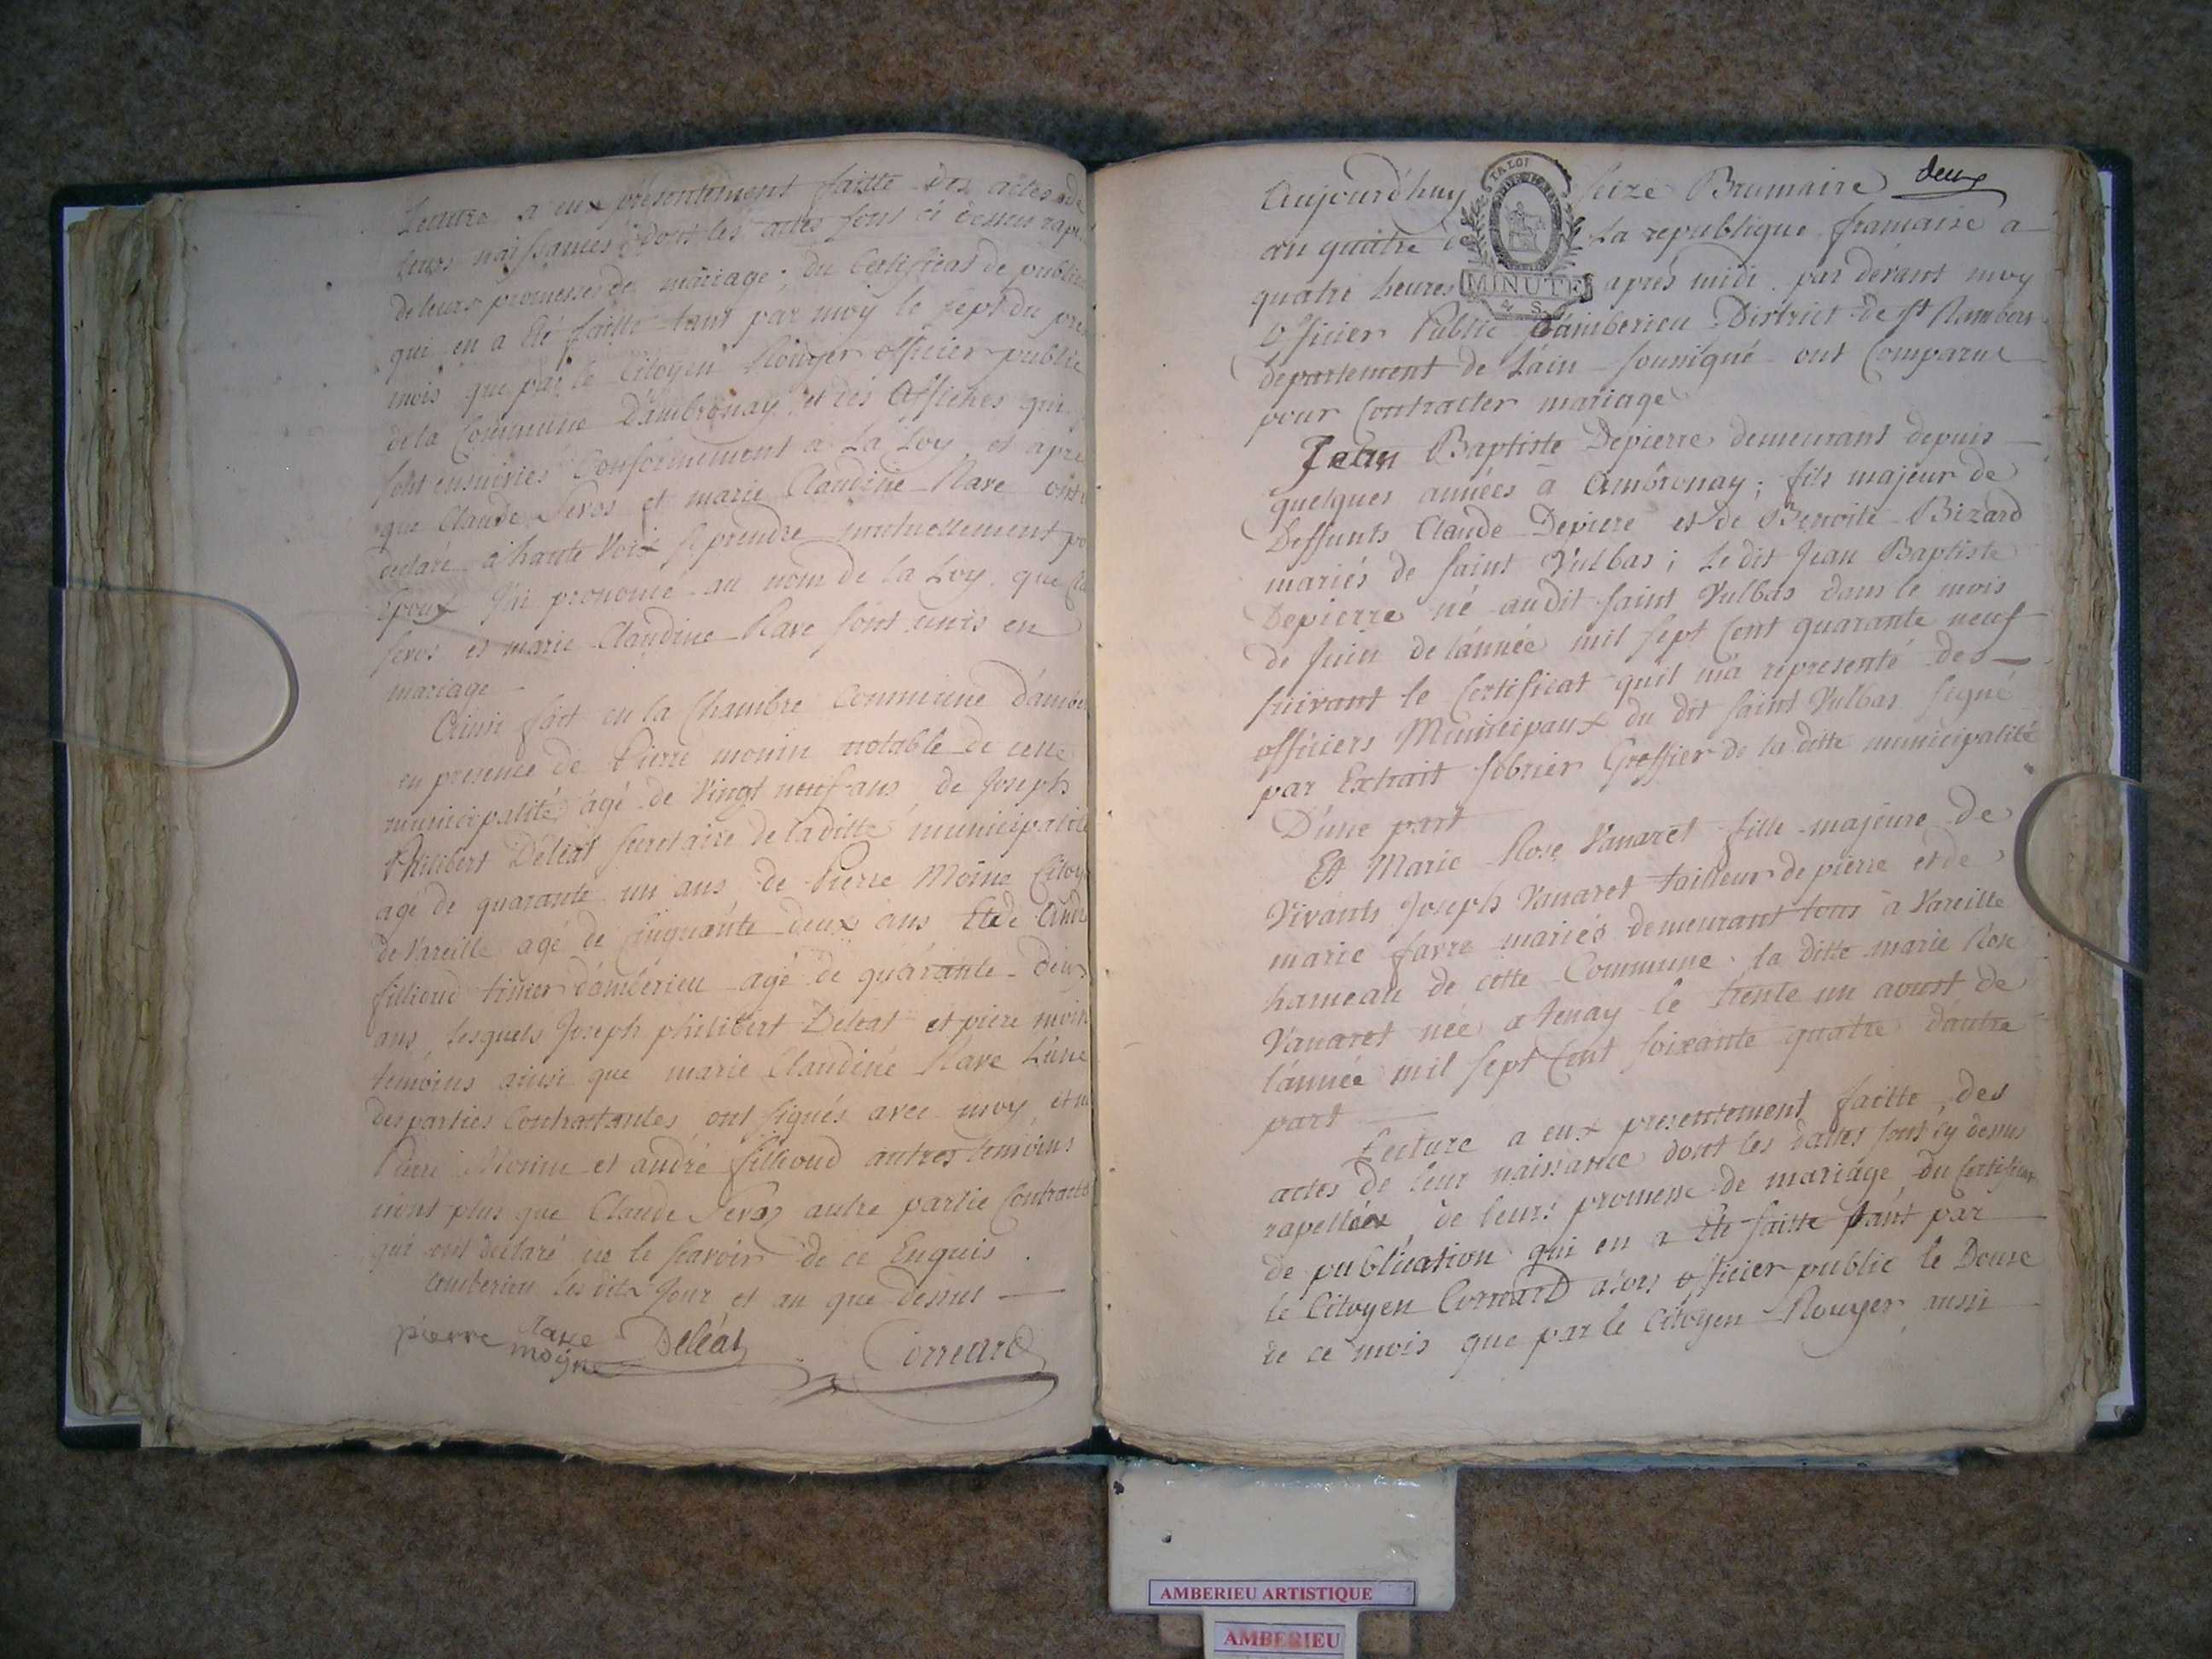 Lecture a eux presentement faitte des actes de
leurs naissances dont les actes sont ci dessus rapel
de leurs promesses de mariage; du Certificat de public
qui en a Eté faitte tant par moy le sept du pre
mois que par le Citoyen Rouyer officier public
de la Commune D'ambronay, et des Affiches qui
sont ensuivies Conformement a La Loy, et apre
que Claude Seros et marie Claudine Rave ont
declaré a haute Voix se prendre mutuellement po
Epoux J'ai prononcé au nom de la Loy, que Cla
seros et marie Claudine Rave sont unis en
mariage
Ainsi fait en la Chambre Commune d'ambe
en presence de Pierre monin notable de cette
municipalité agé de Vingt neuf ans de Joseph
Philibert Déléat secretaire de la ditte municipalité
agé de quarante un ans de Pierre Moine Citoye
de Vareille agé de Cinquante deux ans Et de André
fillioud d'ambérieu agé de quarante deux
ans Lesquels Joseph philibert Deleat et piere moin
temoins ainsi que marie Claudine Rave L'une
des parties Contractantes ont signés avec moy et n
Pierre Monin et andré fillioud autres temoins
non plus que Claude Seros autre partie Contracte
qui ont declaré ne le scavoir de ce Enquis.
amberieu les dits Jour et an que dessus
Rave
pierre moyne Deléat Correard
deux
Aujourd'huy seize Brumaire
an quatre La republique francaise a
quatre heures après midi par devant moy
MINUTE
4 S
Officier Public D'amberieu District de St Rambert
departement de L'ain soussigné ont Comparut
pour Contracter mariage
Jean Baptiste Depierre demeurant depuis
quelques années a Ambronay; fils majeur de
Deffunts Claude Depierre et de Benoite Bizard
mariés de saint Vulbas; Le dit Jean Baptiste
Depierre né audit saint Vulbas dans le mois
de Juin de l'année mil sept Cent quarante neuf
suivant le Certificat quil m'a representé des
officiers Municipaux du dit saint Vulbas signé
par Extrait sobrier Greffier de la ditte municipalité
D'une part
Et Marie Rose Vanaret fille majeure de
Vivants Joseph Vanaret tailleur de pierre et de
marie favre mariés demeurant tous à Vareille
hameau de cette Commune. la ditte marie Rose
Vanaret née a tenay le trente un aoust de
l'année mil sept Cent soixante quatre d'autre
part
Lecture a eux presentement faitte des
actes de leur naissance dont les dattes sont cy dessus
rapellées, de leurs promesse de mariage du Certificat
de publication qui en a Eté faitte tant par
le Citoyen Correard alors officier public le Douze
de ce mois que par le Citoyen Rouyer aussi
AMBERIEU ARTISTIQUE
AMBERIEU